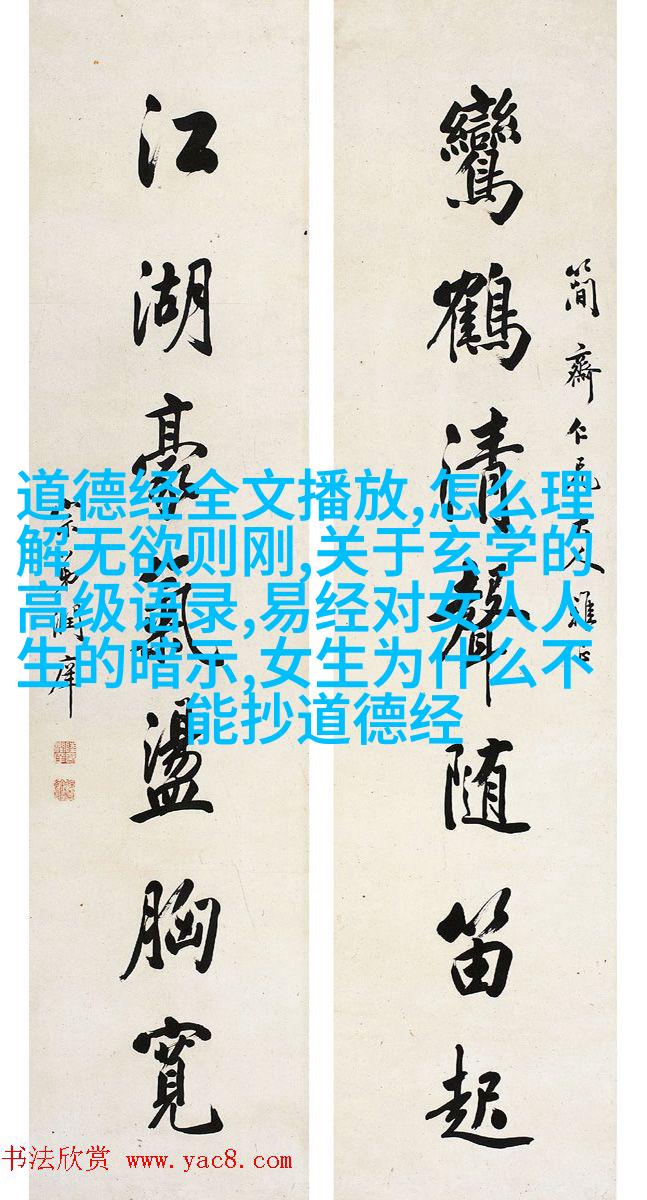 鸞鶴清聲随笛起
簡齋仁兄大人雅正
江湖豪氣盪胸寬
宗弟潤庠
道德经全文播放,怎么理
解无欲则刚,关于玄学的
高级语录,易经对女人人
生的暗示,女生为什么不
能抄道德经
书法欣赏 www.yac8.com